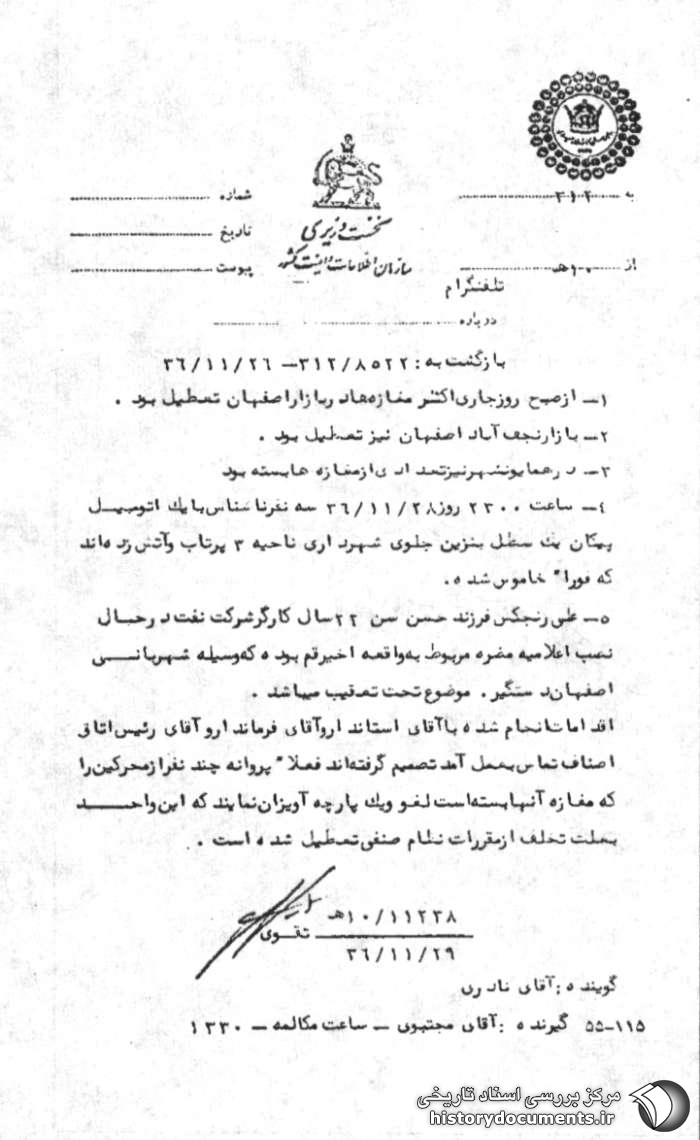 به ۳۱۲ شماره
نخست وزیری
تاریخ
از ۱۰هـ سازمان اطلاعات و امنیت کشور پیوست
تلفنگرام
درباره
بازگشت به : ۳۱۲/۸۵۲۲ – ۳۶/۱۱/۲۶
۱– ازصبح روزجاری اکثر مغازه‌هادربازاراصفهان تعطیل بود .
۲– بازارنجف آباد اصفهان نیز تعطیل بود .
۳– درهمایونشهرنیزتعدادی ازمغازه هابسته بود
۴– ساعت ۲۳۰۰ روز۳۶/۱۱/۲۸ سه نفرناشناس بایك اتومبیل
پیکان یك سطل بنزین جلوی شهرداری ناحیه ۳ پرتاب وآتش زده‌اند
که فورا" خاموش شده .
۵– علی رنجکش فرزند حسن سن ۲۲سال کارگرشرکت نفت درحال
نصب اعلامیه مضره مربوط به‌واقعه اخیرقم بوده که‌وسیله شهربانی
اصفهان‌دستگیر . موضوع تحت تعقیب میباشد .
اقدامات‌انجام شده باآقای استاندارو‌آقای فرماندارو آقای رئیس‌اتاق
اصناف تماس بعمل آمد تصمیم گرفته‌اند فعلا" پروانه چند نفرازمحرکین‌را
که مغازه آنهابسته‌است لغو ویك پارچه آویزان‌نمایند که این‌واحد
بعلت تخلف ازمقررات نظام صنفی تعطیل شده است .
۱۰/۱۱۲۳۸هـ
تقوی
۳۶/۱۱/۲۹
گوینده :آقای نادری
۵۵-۱۱۵ گیرنده :آقای مجتبوی – ساعت مکالمه – ۱۳۳۰
مرکز بررسی اسناد تاریخی
historydocuments.ir